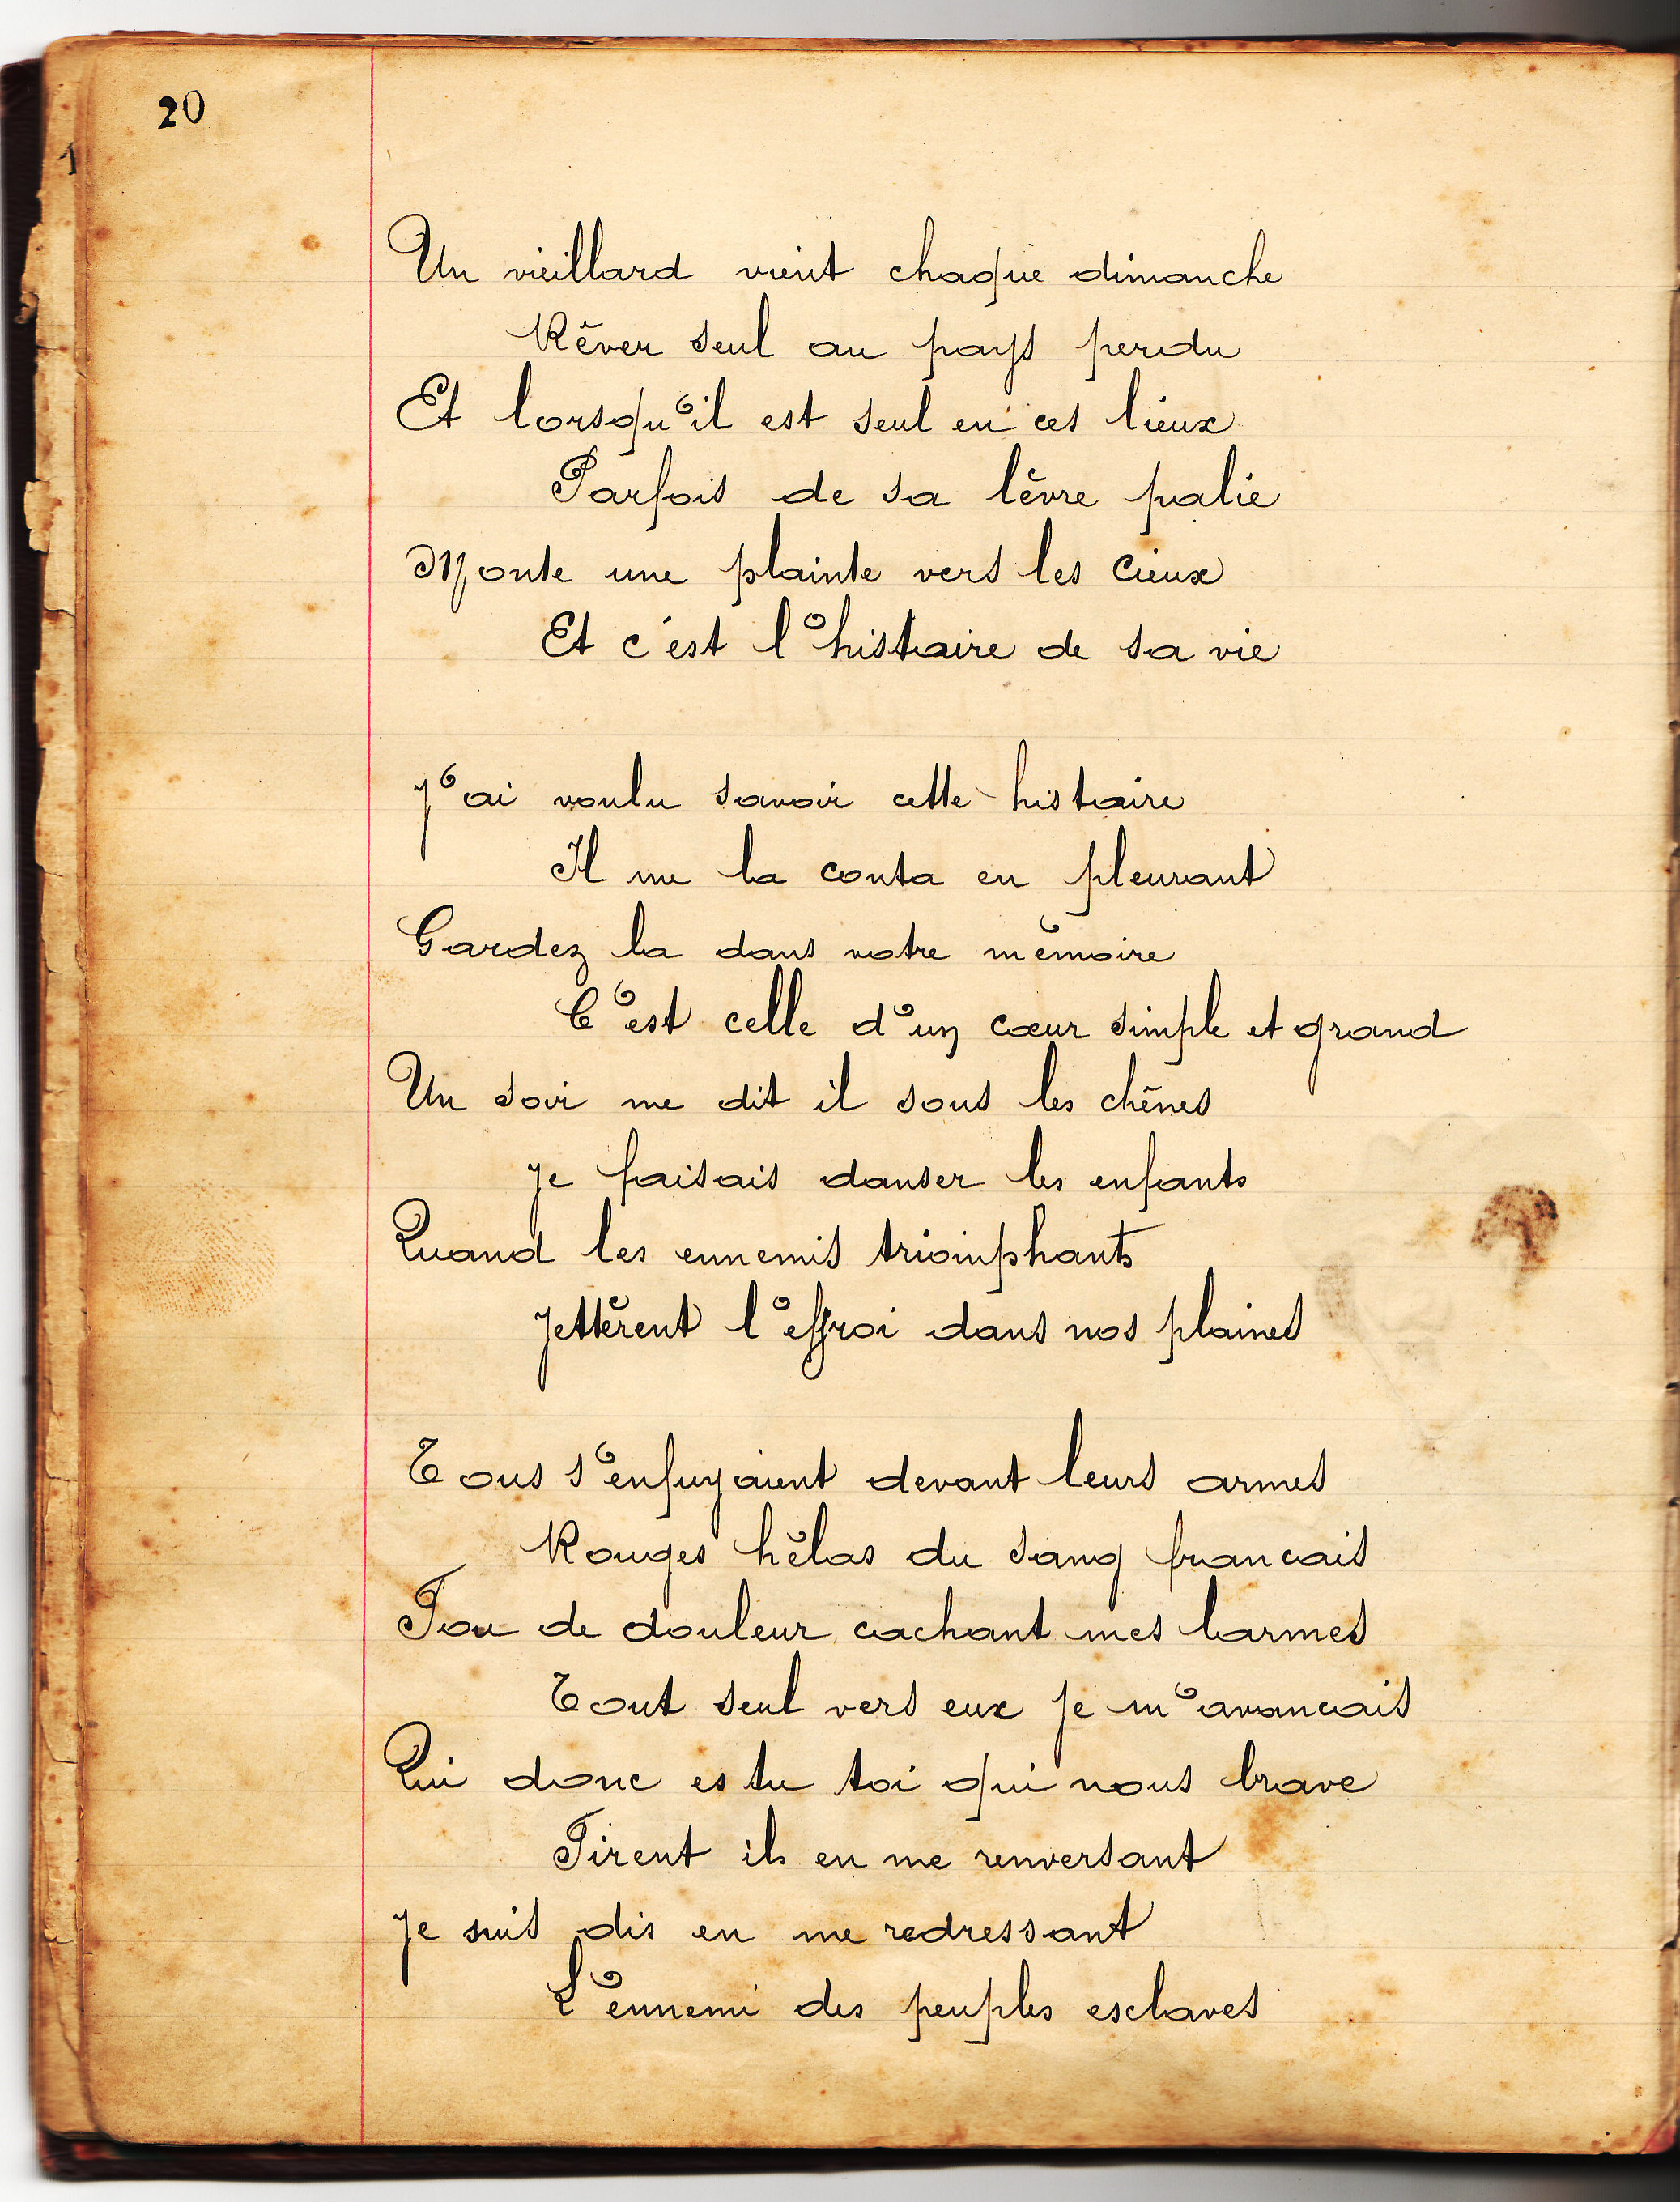 20
1
Un vieillard vient chaque dimanche
Rêver seul au pays perdu
Et lorsqu'il est seul en ces lieux
Parfois de sa lèvre palie
Monte une plainte vers les cieux
Et c'est l'histoire de sa vie
J'ai voulu savoir cette histoire
Il me la conta en pleurant
Gardez la dans votre mémoire
C'est celle d'un cœur simple et grand
Un soir me dit il sous les chênes
Je faisais danser les enfants
Quand les ennemis triomphants
Jettèrent l'effroi dans nos plaines
Tous s'enfuyaient devant leurs armes
Rouges hélas du sang francais
Fou de douleur cachant mes larmes
Tout seul vers eux je m'avancais
Qui donc es tu toi qui nous brave
Firent ils en me renversant
Je suis dis en me redressant
L'ennemi des peuples esclaves